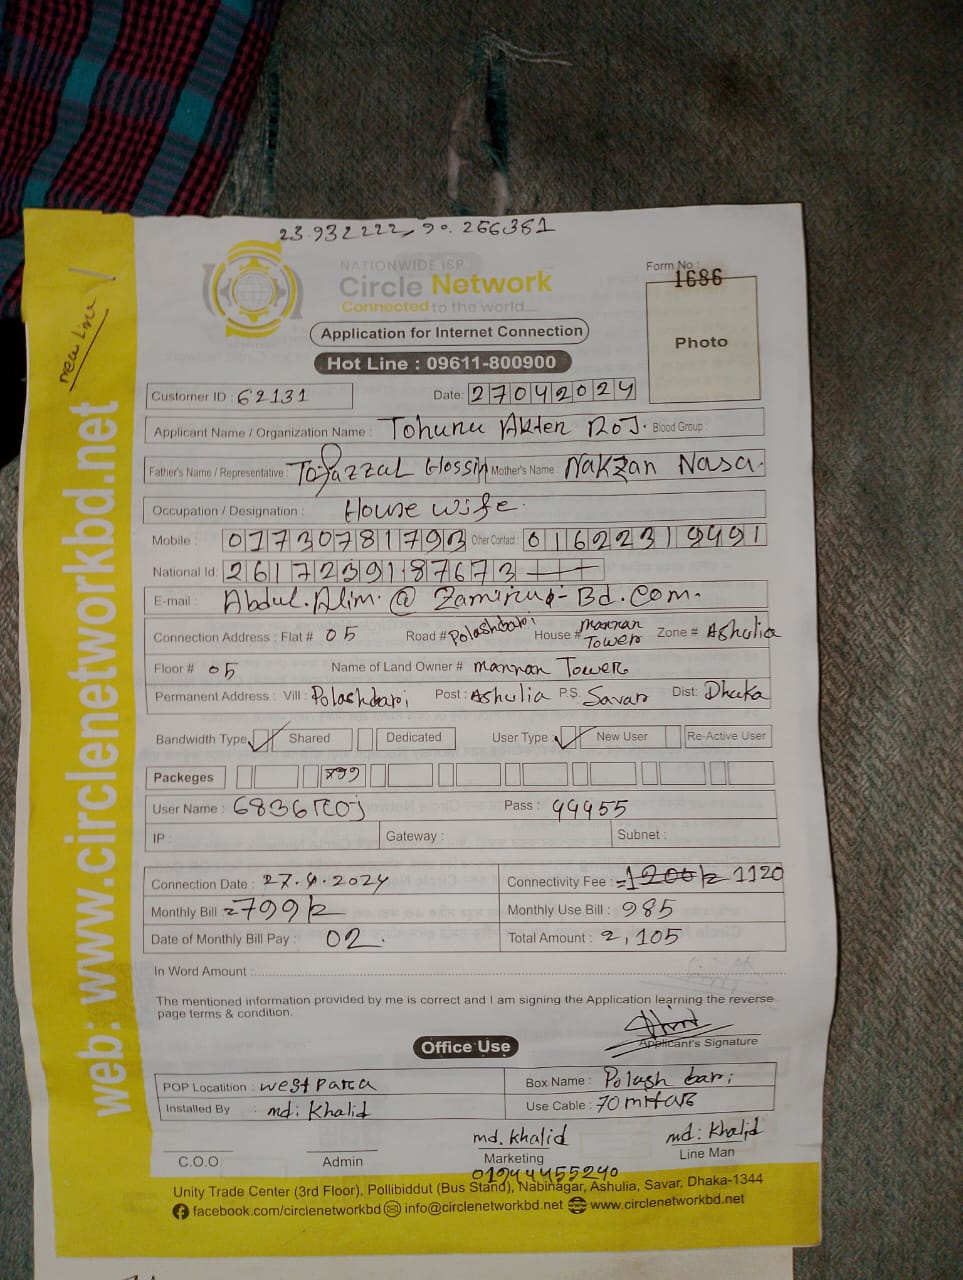 23.932222, 90.266361
NATIONWIDE ISP
Circle Network
Connected to the world....
Form No : 1686
new line
Application for Internet Connection
Hot Line : 09611-800900
Photo
Customer ID : 62131 Date: 27042024
Applicant Name / Organization Name : Tohunu Akter ROJ. Blood Group :
Father's Name / Representative : Tofazzal Hossin Mother's Name : Nakzan Nasa.
Occupation / Designation : House wife.
Mobile : 01730781793 Other Contact 01622319491
National Id: 2617239187673
E-mail : Abdul.Alim.@ -Bd.Com.
Connection Address : Flat # 05 Road # Polashbari House # Mannan Tower Zone # Ashulia
Floor # 05 Name of Land Owner # Mannan Tower
Permanent Address : Vill : Polashbari Post : Ashulia P.S. Savar Dist: Dhaka
Bandwidth Type Shared Dedicated User Type New User Re-Active User
Packeges 799
User Name : 6836roj Pass : 44455
IP : Gateway : Subnet :
Connection Date : 27.4.2024 Connectivity Fee : =1200/= 1120
Monthly Bill =799/= Monthly Use Bill : 985
Date of Monthly Bill Pay : 02. Total Amount : 2,105
In Word Amount :
The mentioned information provided by me is correct and I am signing the Application learning the reverse
page terms & condition.
Applicant's Signature
Office Use
POP Locatition : westpara Box Name : Polash bari
Installed By : md: Khalid Use Cable : 70 mitar
md. khalid md: Khalid
C.O.O Admin Marketing Line Man
01944455240
Unity Trade Center (3rd Floor), Pollibiddut (Bus Stand), Nabinagar, Ashulia, Savar, Dhaka-1344
facebook.com/circlenetworkbd info@circlenetworkbd.net www.circlenetworkbd.net
web: www.circlenetworkbd.net